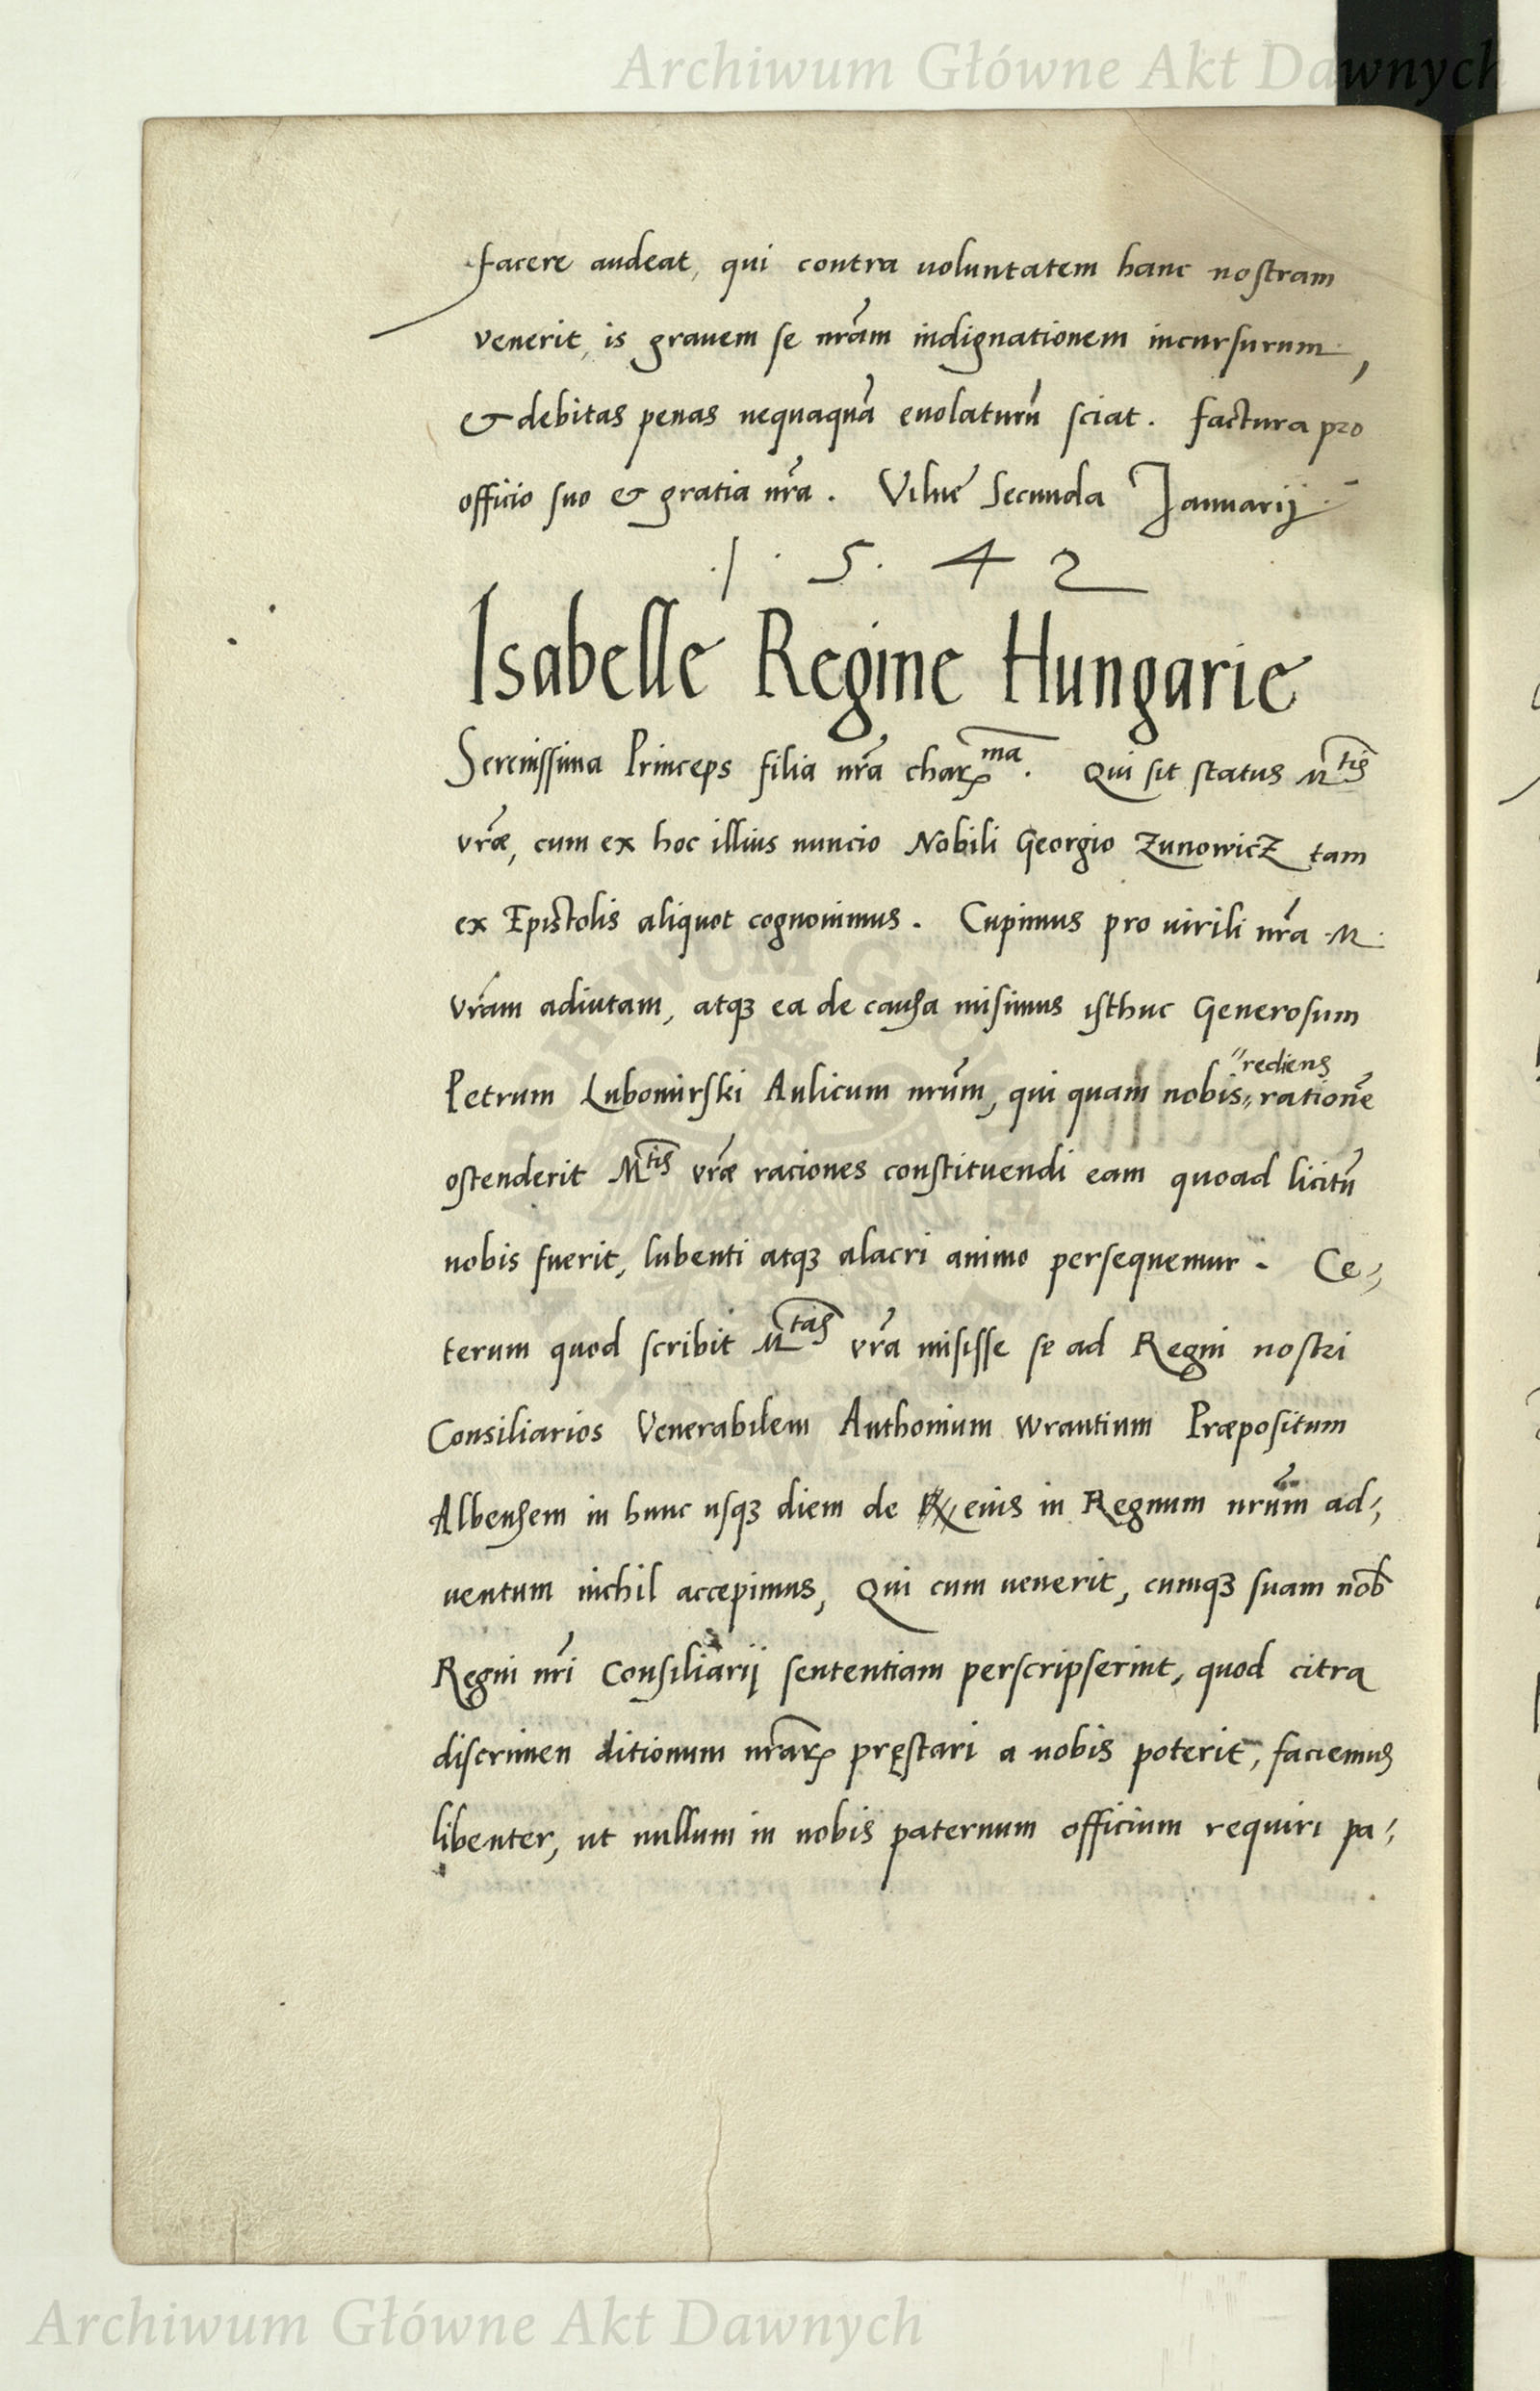 Archiwum Główne Akt Dawnych
facere audeat, qui contra uoluntatem hanc nostram
venerit, is grauem se nr̃am indignationem incursurum,
& debitas penas nequaquã euolaturũ sciat. factura pro
officio suo & gratia nr̃a. Vilnẽ Secunda Januarij.
.1.5.42
Isabelle Regine Hungarie
Serenissima Princeps filia nr̃a charꝝma. Qui sit status Mtis
vr̃æ, cum ex hoc illius nuncio Nobili Georgio ZunowicZ tam
ex Epistolis aliquot cognouimus. Cupimus pro uirili nr̃a M.
vr̃am adiutam, atqꝫ ea de causa misimus isthuc Generosum
"rediens
Petrum Lubomirski Aulicum nr̃um, qui quam nobis" rationẽ
ostenderit Mtis vr̃æ raciones constituendi eam quoad licitũ
nobis fuerit, lubenti atqꝫ alacri animo persequemur. Ce=
terum quod scribit Mtas vr̃a misisse se ad Regni nostri
Consiliarios Venerabilem Anthonium wrantium Præpositum
Albensem in hunc usqꝫ diem de eius in Regnum nr̃um ad=
uentum nichil accepimus, Qui cum uenerit, cumqꝫ suam nob̃
Regni nr̃i Consiliarij sententiam perscripserint, quod citra
discrimen ditionum nr̃arꝝ pręstari a nobis poterit, faciemus
libenter, ut nullum in nobis paternum officium requiri pa=
Archiwum Główne Akt Dawnych